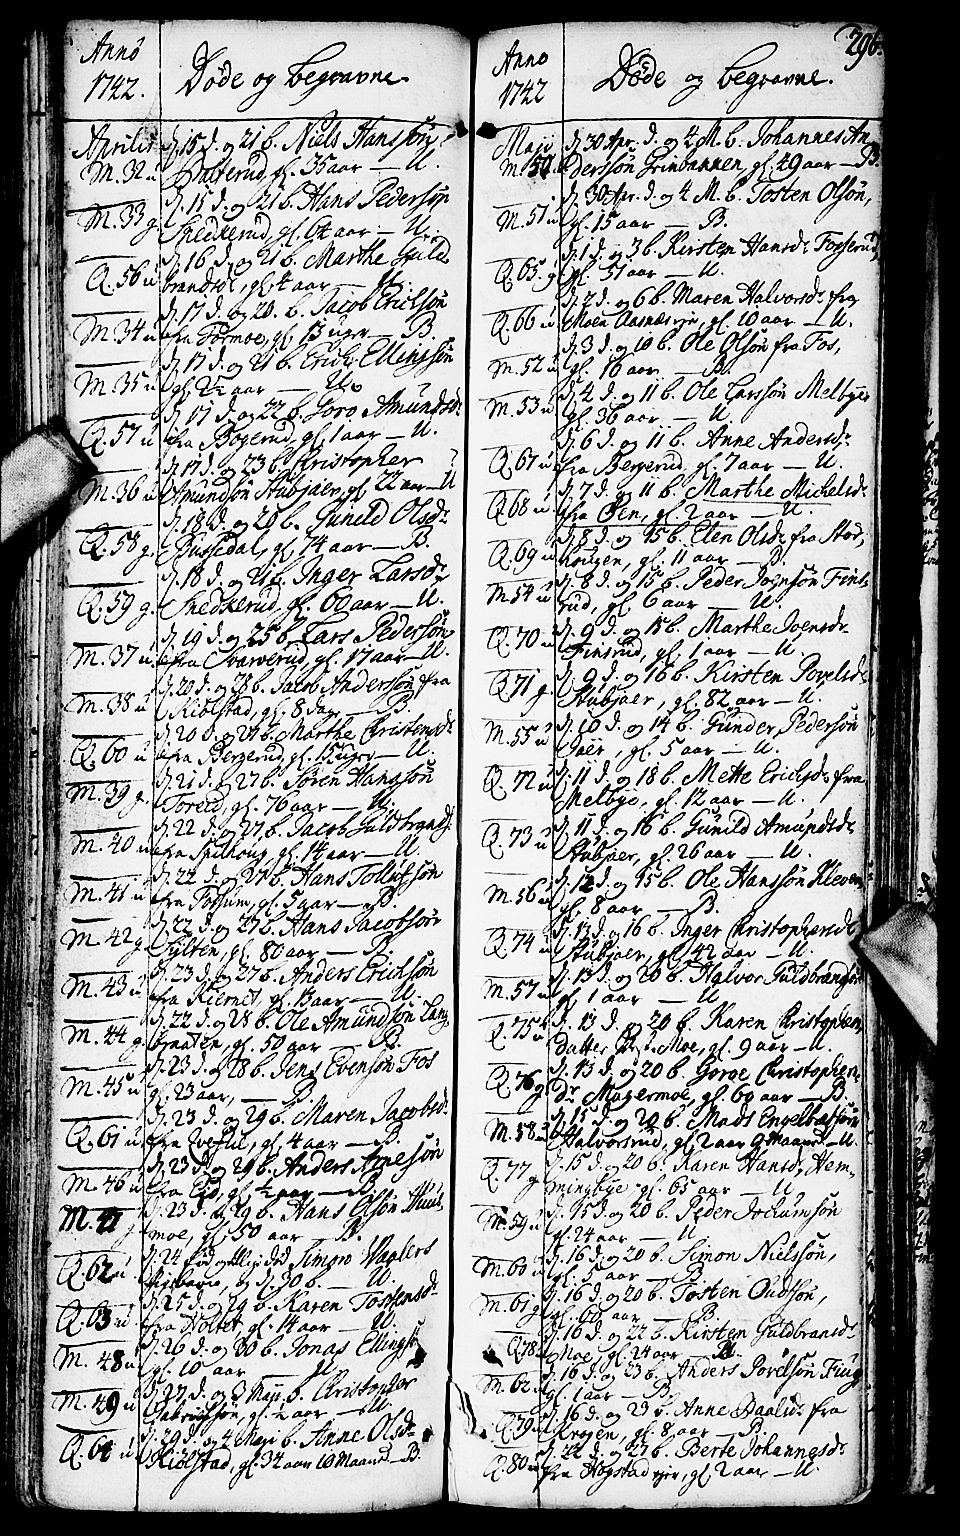 Anno
1742.
Døde og begravne.
Aprilis d. 15 d. og 21 b. Niels Hanssøn
M. 32 u Dalterud, gl. 35 aar — U.
d. 15 d. og 21 b. Hans Pedersøn
M. 33 g Snedkerud, gl. 64 aar — U.
d. 16 d. og 21 b. Marthe Guld
Q. 56 u brandsd:, gl. ¼ aar —
d. 17 d. og 20. b. Jacob Erichsøn
M. 34 u fra Formoe, gl. 13 uger — B.
d. 17 d. og 21 b. Erich Ellingsøn
M. 35 u gl. 2½ aar — U.
d. 17 d. og 22 b. Goro Amundsd:
Q. 57 u fra Bøgerud, gl. 1 aar — U.
d. 17 d. og 23 b. Christopher
M. 36 u Amundsøn Stubjaer, gl. 22 aar — U
d. 18 d. og 26 b. Gunild Olsd:
Q. 58 g. Bussedal, gl. 74 aar — B.
d. 18 d. og 21 b. Inger Larsd:
Q. 59 g. Snedkerud, gl. 60 aar — U.
d. 19 d. og 25 b. Lars Pedersøn
M. 37 u fra Svarverud, gl. 17 aar — U.
d. 20 d. og 28 b. Jacob Andersøn fra
M. 38 u Kiolstad, gl. 8 dage — B.
d. 20 d. og 27 b. Marthe Christensd:
Q. 60 u fra Bergerud, gl. 15 uger — U.
d. 21 d. og 27 b. Søren Hanssøn
M. 39 g. Toreid, gl. 76 aar — U.
d. 22 d. og 27 b. Jacob Guldbrands:
M. 40 u fra Spilhoug, gl. 14 aar — U.
d. 22 d. og 27 b. Hans Tollufsøn
M. 41 u fra Fossum, gl. 5 aar — B.
d. 22 d. og 27 b. Hans Jacobsøn
M. 42 g. Sylten, gl. 80 aar — B.
d. 23 d. og 27 b. Anders Erichsøn
M. 43 u fra Kiernet, gl. 13 aar — U.
d. 22 d. og 28 b. Ole Amundsøn Lang
M. 44 g. braaten, gl. 50 aar — B.
d. 23 d. og 28 b. Jens Evensøn Fos
M. 45 u gl. 23 aar, — B.
d. 23 d. og 29 b. Maren Jacobsd:
Q. 61 u fra, gl. 4 aar — B.
d. 23 d. og 29 b. Anders Arnesøn
M. 46 u fra Eid, gl. ½ aar — B.
d. 23 d. og 29 b. Hans Olsøn
M. 47 g moe, gl. 50 aar — B.
d. 24 fød og død Simøn Vaalers
Q. 62 u Pigebarn, og d. 30 b. — U.
d. 25 d. og 29 b. Karen Tostensd:
Q. 63 u fra Holter, gl. 14 aar — U.
d. 26 d. og 30 b. Jonas Ellings:
M. 48 u gl. 10 aar — U
d. 27 d. og 3 Maji b. Christopher
M. 49 u Gabrielsøn, gl. ¼ aar — U.
d. 29 d. og 4 Maji b. Anne Olsd:
Q. 64 u Kiolstad, gl. 32 aar 10 Maaned — B.
296.
Anno
1742
Døde og begravne.
Maji d. 30 Apr. d. og 4 M. b. Johannes An
M. 50 dersøn Grinbannen, gl. 49 aar — B.
d. 30 Apr. d. og 4 M. b. Tosten Olsøn,
M. 51 u gl. 15 aar — B.
d. 1 d. og 3 b. Kirsten Hansd: Fosserud,
Q. 65 g. gl. 51 aar — U.
d. 2 d. og 6 b. Maren Halvorsd: fra
Q. 66 u Moen Aasnæs, gl. 10 aar — U.
d. 3 d. og 10 b. Ole Olsøn fra Fos,
M. 52 u gl. 16 aar — B.
d. 4 d. og 11 b. Ole Larssøn Melbye
M. 53 u gl. 36 aar — U.
d. 6 d. og 11 b. Anne Andersd:
Q. 67 u fra Bergerud, gl. 7 aar — U.
d. 7 d. og 11 b. Marthe Michelsd:
Q. 68 u fra Øen, gl. 2 aar — U.
d. 8 d. og 15 b. Elen Olsd: fra Stor,
Q. 69 u hougen, gl. 11 aar — B.
d. 8 d. og 15 b. Peder Joensøn Fins
M. 54 u rud, gl. 6 aar — U.
d. 9 d. og 15 b. Marthe Joensd:
Q. 70 u Finsrud, gl. 1 aar — U.
d. 9 d. og 16 b. Kirsten Povelsd:
Q 71 g. Stubjaer, gl. 82 aar — U
d. 10 d. og 14 b. Gunder Pedersøn
M. 55 u Gaer, gl. 5 aar — U.
d. 11 d. og 18 b. Mette Erichsd: fra
Q. 72 u Melbye, gl. 12 aar — U.
d. 11 d. og 16 b. Gunild Amundsd:
Q. 73 u Stubjaer, gl. 26 aar — U.
d. 12 d. og 15 b. Ole Hanssøn Kleven
M. 56 u gl. 8 aar — B.
d. 13 d. og 16 b. Inger Christophersd:
Q. 74 u Stubjaer, gl. 42 aar — U.
d. 13 d. og 20 b. Halvor Guldbrandsøn
M. 57 u gl. 1 aar — U
d. 13 d. og 20 b. Karen Christophers
Q. 75 u datter Moe, gl. 9 aar — U.
d. 13 d. og 20 b. Goroe Christophers
Q. 76 g dr. Magermoe, gl. 60 aar — B.
d. 15 d. og 20 b. Mads Engelbretsøn
M. 58 u Halvorsrud, gl. 2 aar 9 Maaned — U.
d. 15 d. og 20 b. Karen Hansd: Hem
Q. 77 g mingbye gl. 65 aar — U
d. 15 d. og 20 b. Peder Jochumsøn
M. 59 u gl. 24 aar — U
d. 16 d. og 20 b. Simon Nielssøn,
M. 60 u gl. 5 aar — B
d. 16 d. og 20 b. Tosten Gudsøn,
M. 61 g gl. 60 aar — B.
d. 16 d. og 22 b. Kirsten Guldbransd:
Q. 78 u Moe, gl. 24 aar —
d. 16 d. og 23 b. Anders Povelsøn
M. 62 u gl. 1 aar — B.
d. 16 d. og 23 b. Anne Paalsd: fra
Q. 79 u Krogen, gl. 8 aar — B.
d. 22 d. og 27 b. Berte Johannesd:
Q. 80 u fra Hogstad, gl. 2 aar — U.